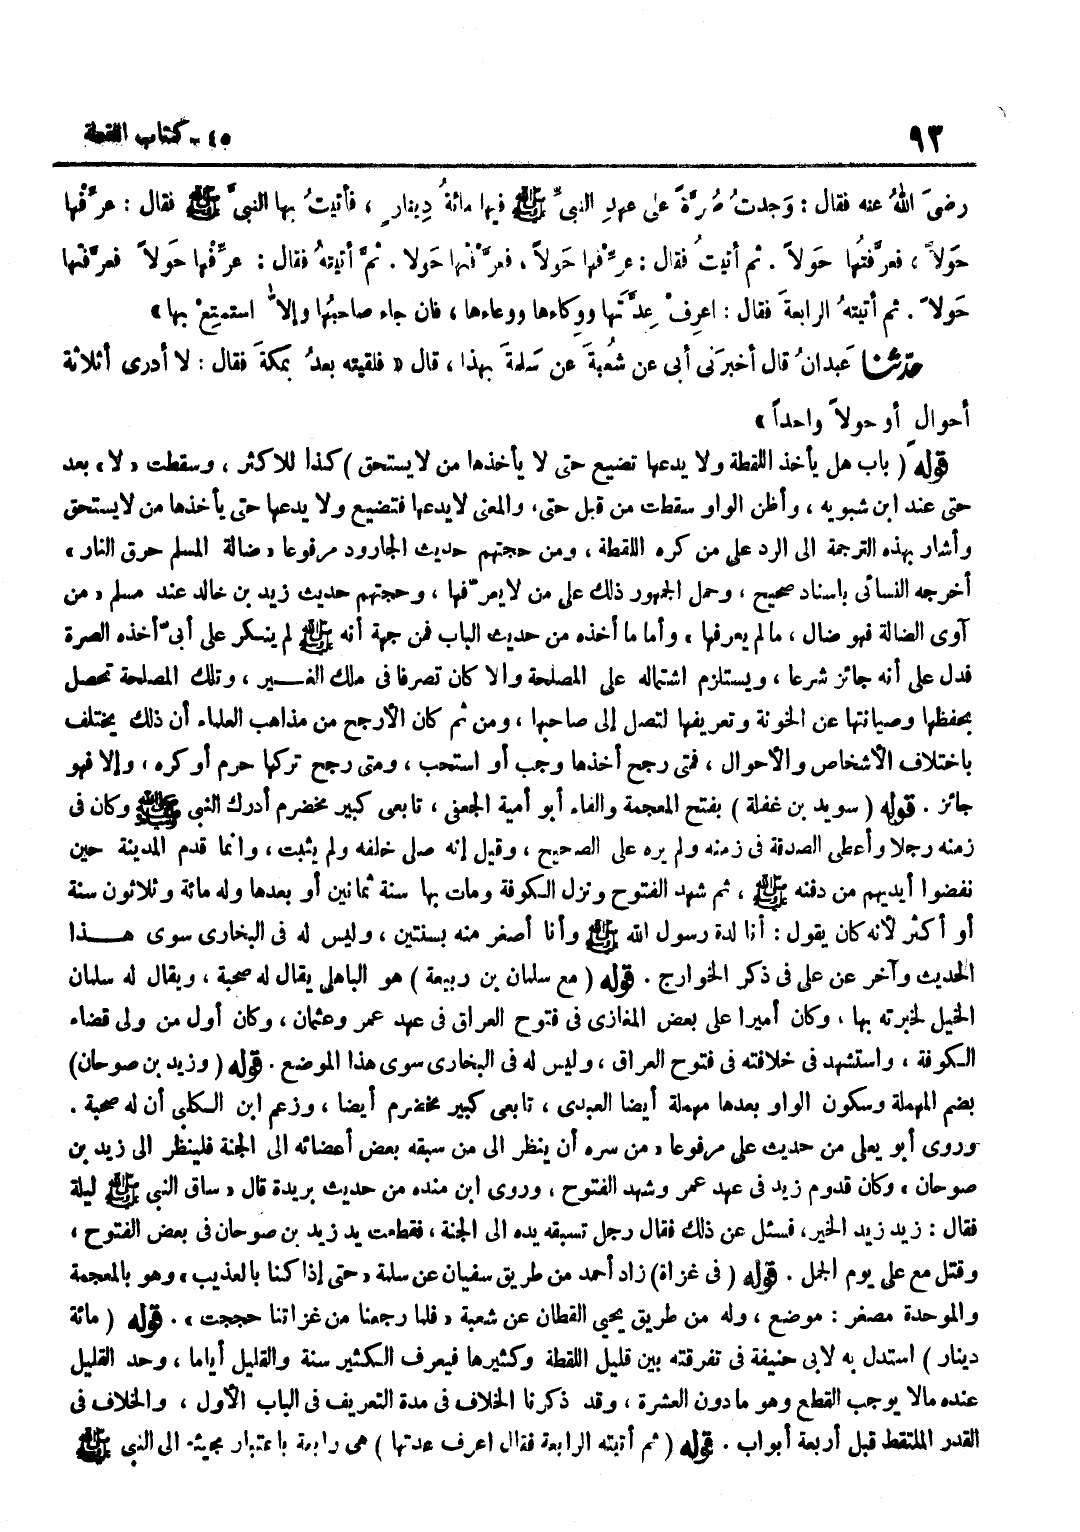 ٩٣ ٤٥ - كتاب اللقطة
رضىَ اللهُ عنه فقال : وَجدتُ صُرَّةً على عهدِ النبىِّ ﷺ فيها مائةُ دِينارٍ ، فأتيتُ بها النبىَّ ﷺ فقال : عرِّفْها
حَولاً ، فعرَّفتُها حَولاً . ثم أتيتُ فقال : عرِّفْها حَولاً ، فعرَّفْتها حَولا . ثمَّ أتيتهُ فقال : عرِّفْها حَولاً فعرَّفتها
حَولاً . ثم أتيتهُ الرابعةَ فقال : اعرِفْ عِدَّتَها ووِكاءها ووعاءها ، فان جاء صاحبُها وإلاَّ استمتِعْ بها »
حدّثنا عَبدانُ قال أخبرَنى أبى عن شُعبةَ عن سَلمةَ بهذا ، قال « فلقيته بعدُ بمكةَ فقال : لا أدرى أثلاثة
أحوالٍ أو حولاً واحداً »
قوله ( باب هل يأخذ اللقطة ولا يدعها تضيع حتى لا يأخذها من لا يستحق ) كذا للاكثر ، وسقطت « لا » بعد
حتى عند ابن شبويه ، وأظن الواو سقطت من قبل حتى، والمعنى لايدعها فتضيع ولا يدعها حتى يأخذها من لايستحق
وأشار بهذه الترجمة الى الرد على من كره اللقطة ، ومن حجتهم حديث الجارود مرفوعا « ضالة المسلم حرق النار »
أخرجه النسائى باسناد صحيح ، وحمل الجمهور ذلك على من لايعرّفها ، وحجتهم حديث زيد بن خالد عند مسلم « من
آوى الضالة فهو ضال ، مالم يعرفها » وأما ما أخذه من حديث الباب فمن جهة أنه ﷺ لم ينكر على أبىّ أخذه الصرة
فدل على أنه جائز شرعا ، ويستلزم اشتماله على المصلحة والا كان تصرفا فى ملك الغير ، وتلك المصلحة تحصل
بحفظها وصيانتها عن الخونة وتعريفها لتصل إلى صاحبها ، ومن ثم كان الأرجح من مذاهب العلماء أن ذلك يختلف
باختلاف الأشخاص والأحوال ، فمتى رجح أخذها وجب أو استحب ، ومتى رجح تركها حرم أو كره ، وإلا فهو
جائز . قوله ( سويد بن غفلة ) بفتح المعجمة والفاء أبو أمية الجعفى ، تابعى كبير مخضرم أدرك النبى ﷺ وكان فى
زمنه رجلا وأعطى الصدقة فى زمنه ولم يره على الصحيح ، وقيل إنه صلى خلفه ولم يثبت ، وانما قدم المدينة حين
نفضوا أيديهم من دفنه ﷺ ، ثم شهد الفتوح ونزل الكوفة ومات بها سنة ثمانين أو بعدها وله مائة وثلاثون سنة
أو أكثر لأنه كان يقول : أنا لدة رسول الله ﷺ وأنا أصغر منه بسنتين ، وليس له فى البخارى سوى هذا
الحديث وآخر عن على فى ذكر الخوارج . قوله ( مع سلمان بن ربيعة ) هو الباهلى يقال له صحبة ، ويقال له سلمان
الخيل لخبرته بها ، وكان أميرا على بعض المغازى فى فتوح العراق فى عهد عمر وعثمان ، وكان أول من ولى قضاء
الكوفة ، واستشهد فى خلافته فى فتوح العراق ، وليس له فى البخارى سوى هذا الموضع . قوله ( وزيد بن صوحان)
بضم المهملة وسكون الواو بعدها مهملة أيضا العبدى ، تابعى كبير مخضرم أيضا ، وزعم ابن الكلبى أن له صحبة .
وروى أبو يعلى من حديث على مرفوعا « من سره أن ينظر الى من سبقه بعض أعضائه الى الجنة فلينظر الى زيد بن
صوحان » وكان قدوم زيد فى عهد عمر وشهد الفتوح ، وروى ابن منده من حديث بريدة قال « ساق النبى ﷺ ليلة
فقال : زيد زيد الخير، فسئل عن ذلك فقال رجل تسبقه يده الى الجنة ، فقطعت يد زيد بن صوحان فى بعض الفتوح ،
وقتل مع على يوم الجمل . قوله ( فى غزاة) زاد أحمد من طريق سفيان عن سلمة « حتى إذا كنا بالعذيب » وهو بالمعجمة
والموحدة مصغر : موضع ، وله من طريق يحيى القطان عن شعبة « فلما رجعنا من غزاتنا حججت » . قوله ( مائة
دينار ) استدل به لابى حنيفة فى تفرقته بين قليل اللقطة وكثيرها فيعرف الكثير سنة والقليل أياما ، وحد القليل
عنده مالا يوجب القطع وهو مادون العشرة ، وقد ذكرنا الخلاف فى مدة التعريف فى الباب الأول ، والخلاف فى
القدر الملتقط قبل أربعة أبواب . قوله ( ثم أتيته الرابعة فقال اعرف عدتها ) هى رابعة باعتبار مجيئه الى النبى ﷺ